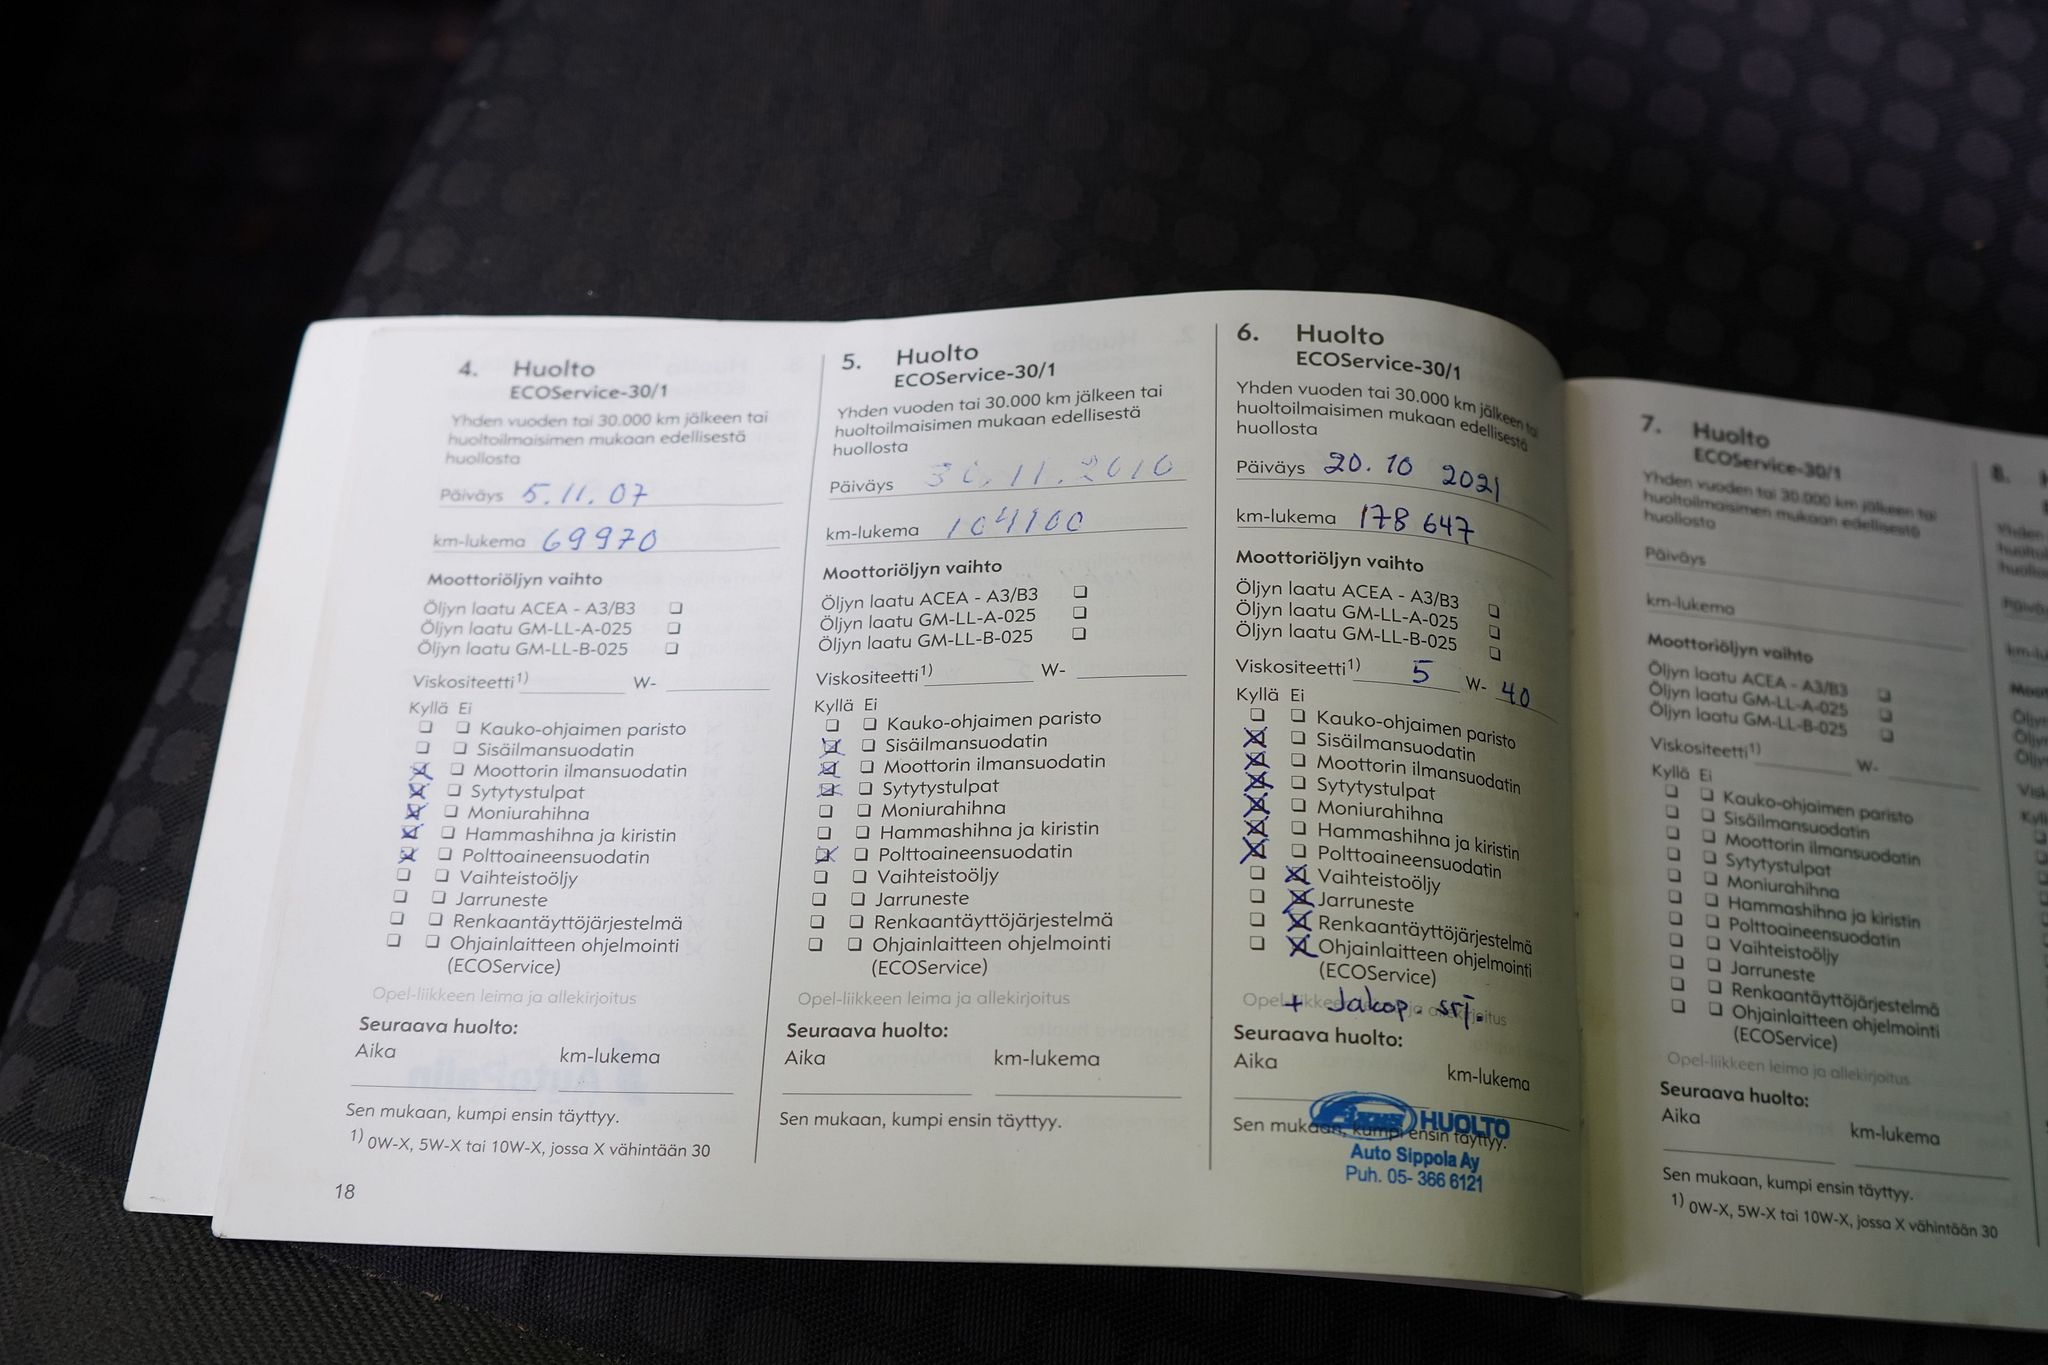 4. Huolto
ECOService-30/1
Yhden vuoden tai 30.000 km jälkeen tai
huoltoilmaisimen mukaan edellisestä
huollosta
Päiväys 5.11.07
km-lukema 69970
Moottoriöljyn vaihto
Öljyn laatu ACEA - A3/B3
Öljyn laatu GM-LL-A-025
Öljyn laatu GM-LL-B-025
Viskositeetti1) W-
Kyllä Ei
Kauko-ohjaimen paristo
Sisäilmansuodatin
Moottorin ilmansuodatin
Sytytystulpat
Moniurahihna
Hammashihna ja kiristin
Polttoaineensuodatin
Vaihteistoöljy
Jarruneste
Renkaantäyttöjärjestelmä
Ohjainlaitteen ohjelmointi
(ECOService)
Opel-liikkeen leima ja allekirjoitus
Seuraava huolto:
Aika km-lukema
Sen mukaan, kumpi ensin täyttyy.
1) 0W-X, 5W-X tai 10W-X, jossa X vähintään 30
18
5. Huolto
ECOService-30/1
Yhden vuoden tai 30.000 km jälkeen tai
huoltoilmaisimen mukaan edellisestä
huollosta
Päiväys 30.11.2010
km-lukema 104100
Moottoriöljyn vaihto
Öljyn laatu ACEA - A3/B3
Öljyn laatu GM-LL-A-025
Öljyn laatu GM-LL-B-025
Viskositeetti1) W-
Kyllä Ei
Kauko-ohjaimen paristo
Sisäilmansuodatin
Moottorin ilmansuodatin
Sytytystulpat
Moniurahihna
Hammashihna ja kiristin
Polttoaineensuodatin
Vaihteistoöljy
Jarruneste
Renkaantäyttöjärjestelmä
Ohjainlaitteen ohjelmointi
(ECOService)
Opel-liikkeen leima ja allekirjoitus
Seuraava huolto:
Aika km-lukema
Sen mukaan, kumpi ensin täyttyy.
6. Huolto
ECOService-30/1
Yhden vuoden tai 30.000 km jälkeen tai
huoltoilmaisimen mukaan edellisestä
huollosta
Päiväys 20.10 2021
km-lukema 178 647
Moottoriöljyn vaihto
Öljyn laatu ACEA - A3/B3
Öljyn laatu GM-LL-A-025
Öljyn laatu GM-LL-B-025
Viskositeetti1) 5 W- 40
Kyllä Ei
Kauko-ohjaimen paristo
Sisäilmansuodatin
Moottorin ilmansuodatin
Sytytystulpat
Moniurahihna
Hammashihna ja kiristin
Polttoaineensuodatin
Vaihteistoöljy
Jarruneste
Renkaantäyttöjärjestelmä
Ohjainlaitteen ohjelmointi
(ECOService)
Opel-liikkeen leima ja allekirjoitus
+ Jakop. srj.
Seuraava huolto:
Aika km-lukema
Sen mukaan, kumpi ensin täyttyy.
HUOLTO
Auto Sippola Ay
Puh. 05- 366 6121
7. Huolto
ECOService-30/1
Yhden vuoden tai 30.000 km jälkeen tai
huoltoilmaisimen mukaan edellisestä
huollosta
Päiväys
km-lukema
Moottoriöljyn vaihto
Öljyn laatu ACEA - A3/B3
Öljyn laatu GM-LL-A-025
Öljyn laatu GM-LL-B-025
Viskositeetti1) W-
Kyllä Ei
Kauko-ohjaimen paristo
Sisäilmansuodatin
Moottorin ilmansuodatin
Sytytystulpat
Moniurahihna
Hammashihna ja kiristin
Polttoaineensuodatin
Vaihteistoöljy
Jarruneste
Renkaantäyttöjärjestelmä
Ohjainlaitteen ohjelmointi
(ECOService)
Opel-liikkeen leima ja allekirjoitus
Seuraava huolto:
Aika km-lukema
Sen mukaan, kumpi ensin täyttyy.
1) 0W-X, 5W-X tai 10W-X, jossa X vähintään 30
8.